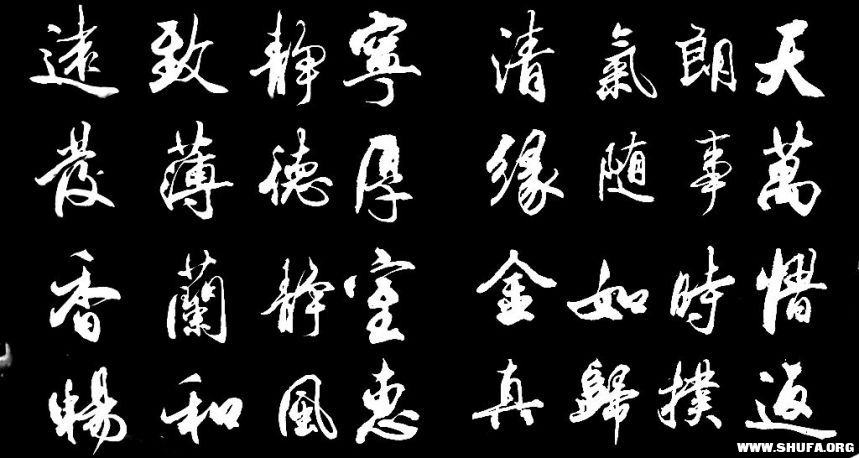 天朗氣清 寧静致遠
萬事随緣 厚德薄發
惜時如金 室静蘭香
返撲歸真 惠風和暢
WWW.SHUFA.ORG